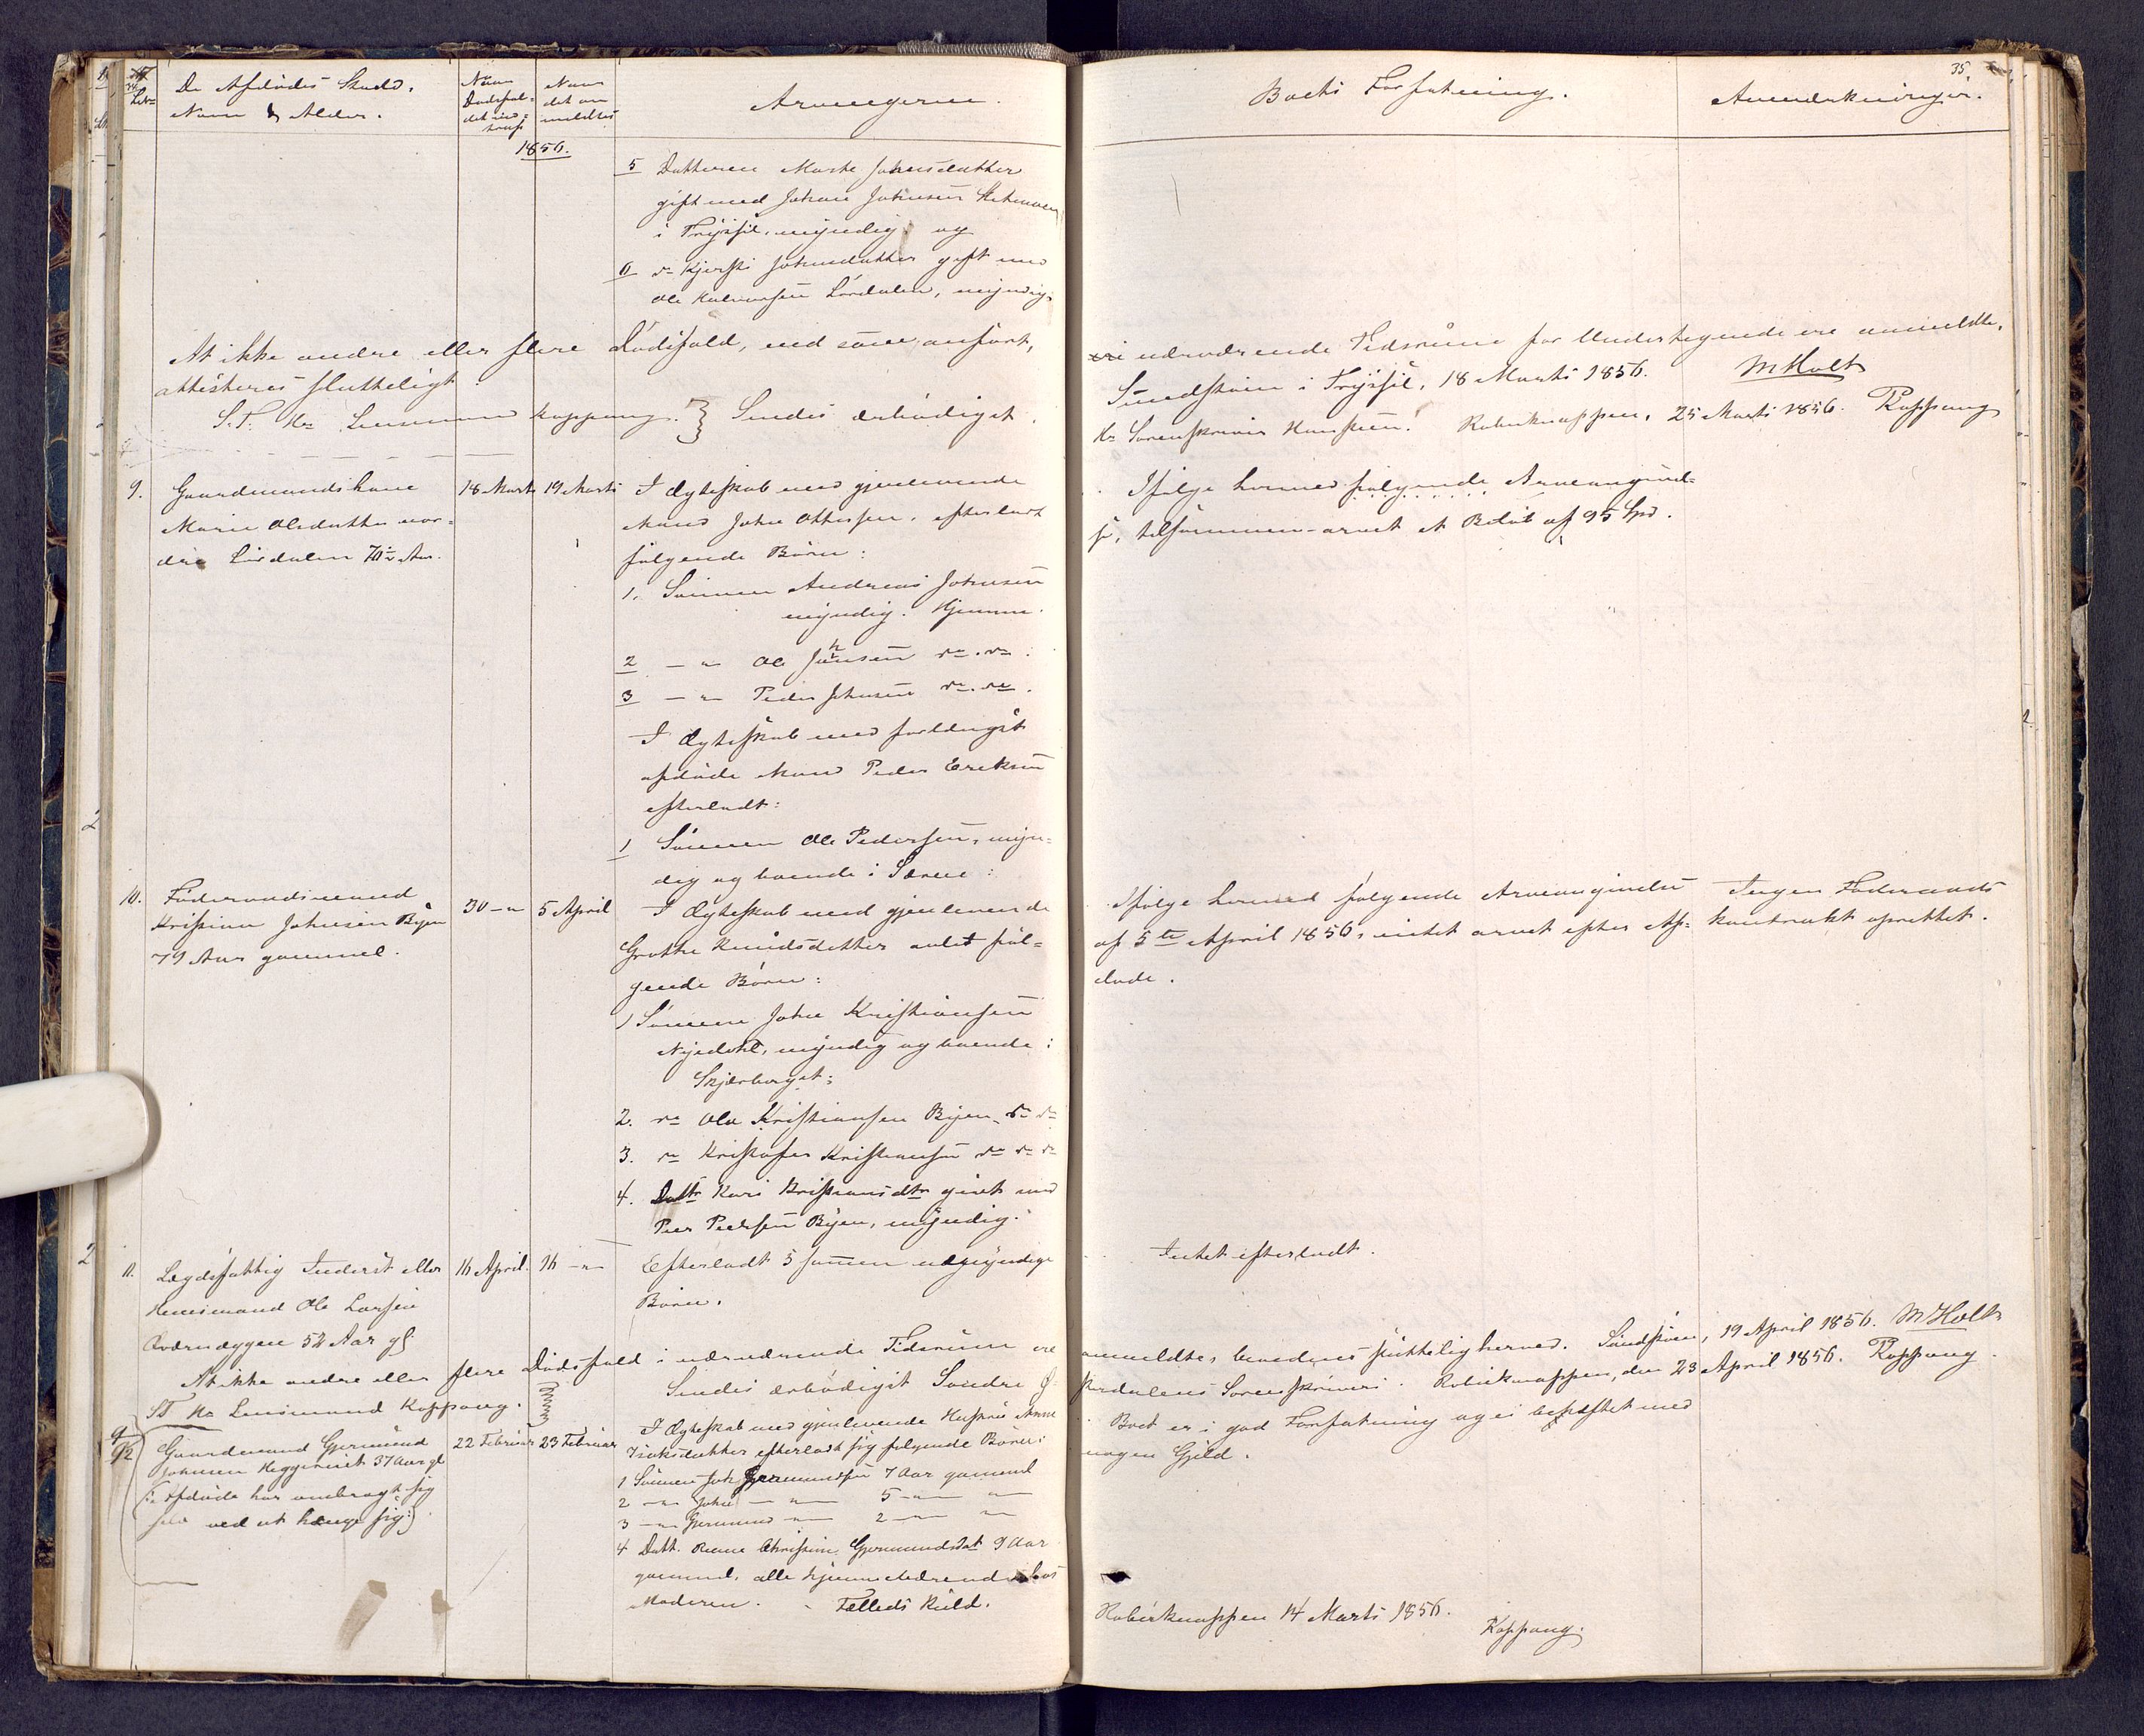 35
De Afdødes Stand,
Navn & Alder.
Naar
Dødsfal-
det ind-
traf
Naar
det an
meldtes
Arvingerne.
Boets Forfatning.
Anmærkninger.
1856.
5 Datteren Marte Johnsdatter
gift med Johan Johnsen
i Trysil, myndig og
6 do Kjersti Johnsdatter gift med
Ole Halvorsen Lördalen, myndig.
At ikke andre eller flere Dödsfald, end som anfört,
ere nærværende Tidsrum for Undertegnede ere anmeldte,
attesteres slutteligt.
Sundstöen i Trysil, 18 Marts 1856. M Holt
S.T. Hr Lensmand Koppang. } Sendes ærbödigst
Hr Sorenskriver Hansteen. Roberknappen, 25 Marts 1856. Koppang
9. Gaardmandskone
Marie Olsdatter nor-
dre Lördalen 70 Aar.
18 Marts 19 Marts
I Ægteskab med gjenlevende
Mand John Ottersen, efterladt
fölgende Börn:
1. Sönnen Andreas Johnsen
myndig. Hjemme.
2 — " Ole Johnsen do. do.
3 — " Peder Johnsen do. do.
I Ægteskab med forlængst
afdöde Mand Peder Eriksen
efterladt:
1 Sönnen Ole Pedersen, myn-
dig og boende i Særne:
Ifölge hermed fölgende Arveangivel-
se, tilsammen arvet et Belöb af 95 Spd.
10. Föderaadsmand
Kristian Johnsen Byen
79 Aar gammel.
30 — " 5 April
I Ægteskab med gjenlevende
Grethe Knudsdatter avlet föl-
gende Börn:
1 Sönnen John Kristiansen
myndig og boende i
Skjærberget:
2. do Ole Kristiansen Byen do do
3. do Kristofer Kristiansen do do do
4. Dattr Kari Kristiansdtr givt med
Peer Peersen Byen, myndig.
Ifölge hermed fölgende Arveangivelse
af 5te April 1856, intet arvet efter Af-
døde.
Ingen Föderaads
kontrakt oprettet.
11. Lægdsfattig Inderst eller
Huusmand Ole Larsen
Qværnæggen 52 Aar gl
16 April. 16 — "
Efterladt 5 sammen umyndige
Börn.
Intet efterladt.
At ikke andre eller flere Dödsfald i nærværende Tidsrum ere
anmeldte, bevidnes slutteligt herved. Sundstöen, 19 April 1856. M Holt
ST Hr Lensmand Koppang.
Sendes ærbödigst Söndre Ø-
sterdalens Sorenskriveri. Roberknappen, den 23 April 1856. Koppang.
Gaardmand Gjermund
Johnsen Heggeriset 37 Aar gl
(: Afdöde har ombragt sig
selv ved at hænge sig:)
22 Februar 23 Februar
I Ægteskab med gjenlevende Hustru Anne
Isaksdatter efterladt sig fölgende Börn:
1 Sönnen Joh Gjermundsen 7 Aar gammel
2 — " John — " — 5 — " — "
3 — " Gjermund — " — 2 — " — "
4 Datt. Christine Gjermundsdat 9 Aar
gammel, alle hjemmeværende hos
Moderen. Fælleds Kuld.
Boet er i god Forfatning og ei behæftet med
nogen Gjeld.
Roberknappen 14 Marts 1856.
Koppang.